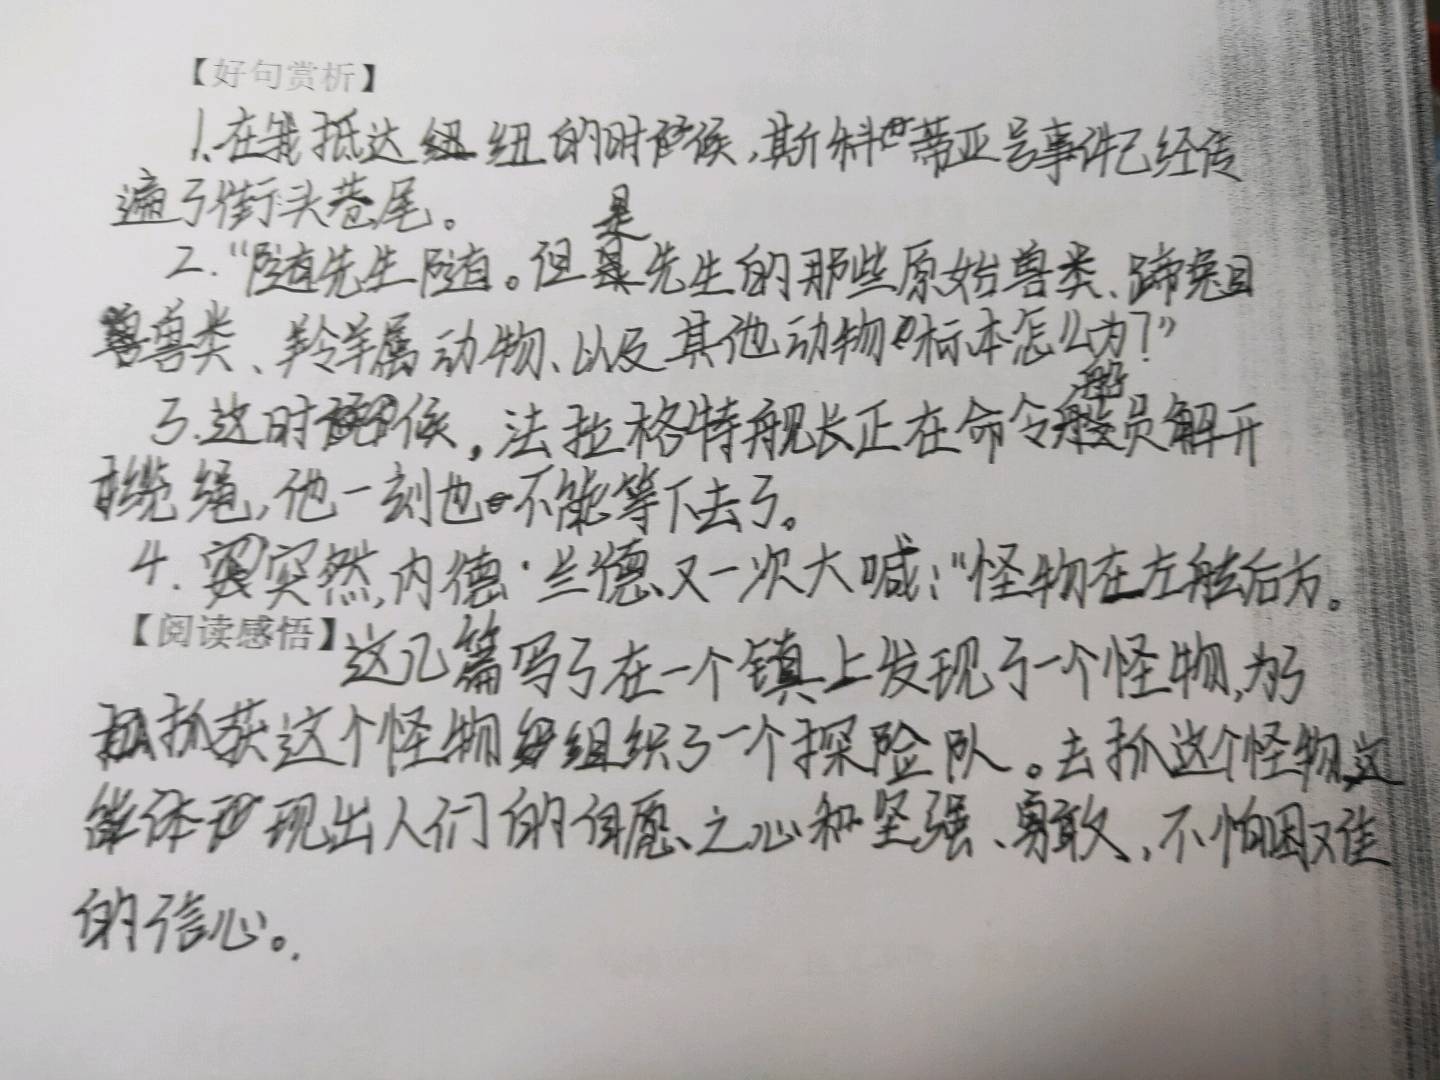 【好句赏析】
1.在我抵达纽的时候，斯科蒂亚号事件已经传
遍了街头巷尾。
2.“随先生随。但是先生的那些原始兽类、蹄兔目
兽类、羚羊属动物、以及其他动物标本怎么为？”
3.这时候，法拉格特舰长正在命令船员解开
缆绳，他一刻也不能等下去了。
4.突然，内德·兰德又一次大喊：“怪物在左舷后方。
【阅读感悟】这几篇写了在一个镇上发现了一个怪物，为了
抓获这个怪物组织了一个探险队。去抓这个怪物这
能体现出人们的自愿、之心和坚强、勇敢，不怕困难
的信心。